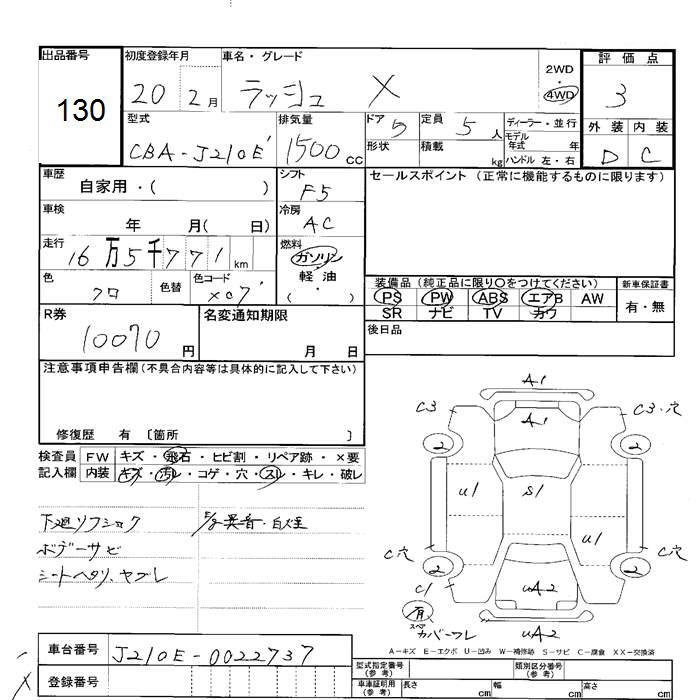 出品番号
130
初度登録年月
20 2月
車名・グレード
ラッシュ X
2WD
・
4WD
評価点
3
外装 内装
D C
型式
CBA-J210E
排気量
1500cc
ドア 5
形状
定員 5人
積載 kg
ディーラー・並行
モデル年式 年
ハンドル 左・右
車歴
自家用・( )
シフト
F5
車検
年 月( 日)
冷房
AC
走行
16万5千771km
燃料
ガソリン
・
軽油
( )
色
クロ
色替
色コード
X07
セールスポイント(正常に機能するものに限ります)
装備品(純正品に限り○をつけてください)
PS PW ABS エアB AW
SR ナビ TV カワ
新車保証書
有・無
後日品
R券
10070円
名変通知期限
月 日
注意事項申告欄(不具合内容等は具体的に記入して下さい)
修復歴 有 〔箇所 〕
検査員記入欄
FW キズ・飛石・ヒビ割・リペア跡・×要
内装 キズ・汚レ・コゲ・穴・スレ・キレ・破レ
下廻ソフショク
ボデーサビ
シートヘタリ、ヤブレ
異音・白煙
A1
C3
A1
C3・穴
2
2
U1
S1
U1
C穴
C穴
2
2
C1
UA2
有
スペ
カバーフレ
UA2
A-キズ E-エクボ U-凹み W-補修跡 S-サビ C-腐食 XX-交換済
車台番号
J210E-0022737
登録番号
型式指定番号(参考)
類別区分番号(参考)
車庫証明用(参考)
長さ cm
幅 cm
高さ cm